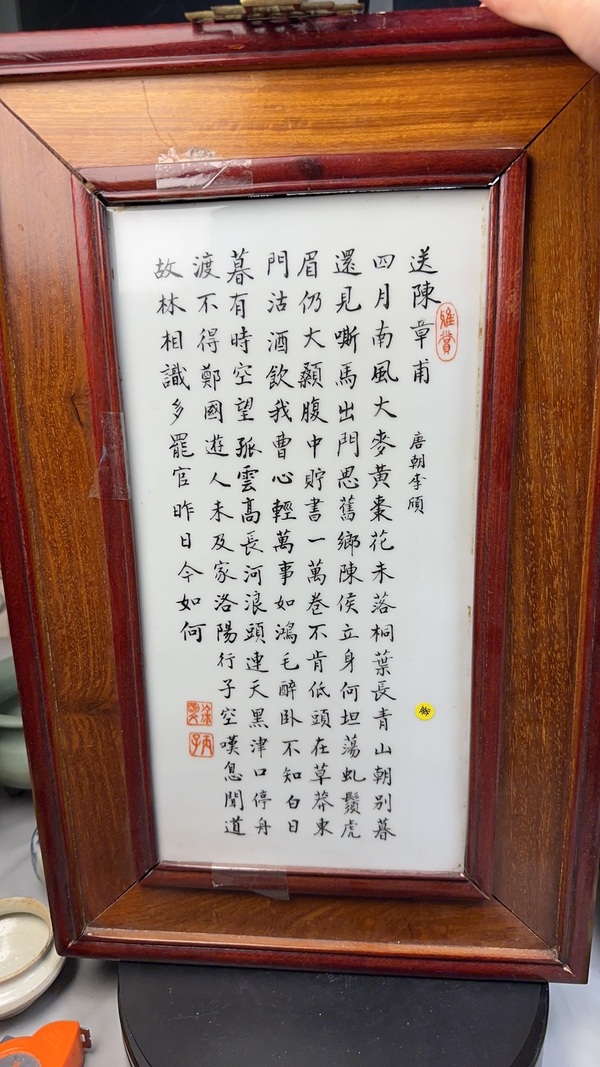 送陳章甫
唐朝李頎
雅賞
四月南風大麥黃棗花未落桐葉長青山朝別暮
還見嘶馬出門思舊鄉陳侯立身何坦蕩虬鬚虎
眉仍大顙腹中貯書一萬卷不肯低頭在草莽東
門沽酒飲我曹心輕萬事如鴻毛醉卧不知白日
暮有時空望孤雲高長河浪頭連天黑津口停舟
渡不得鄭國遊人未及家洛陽行子空嘆息聞道
故林相識多罷官昨日今如何